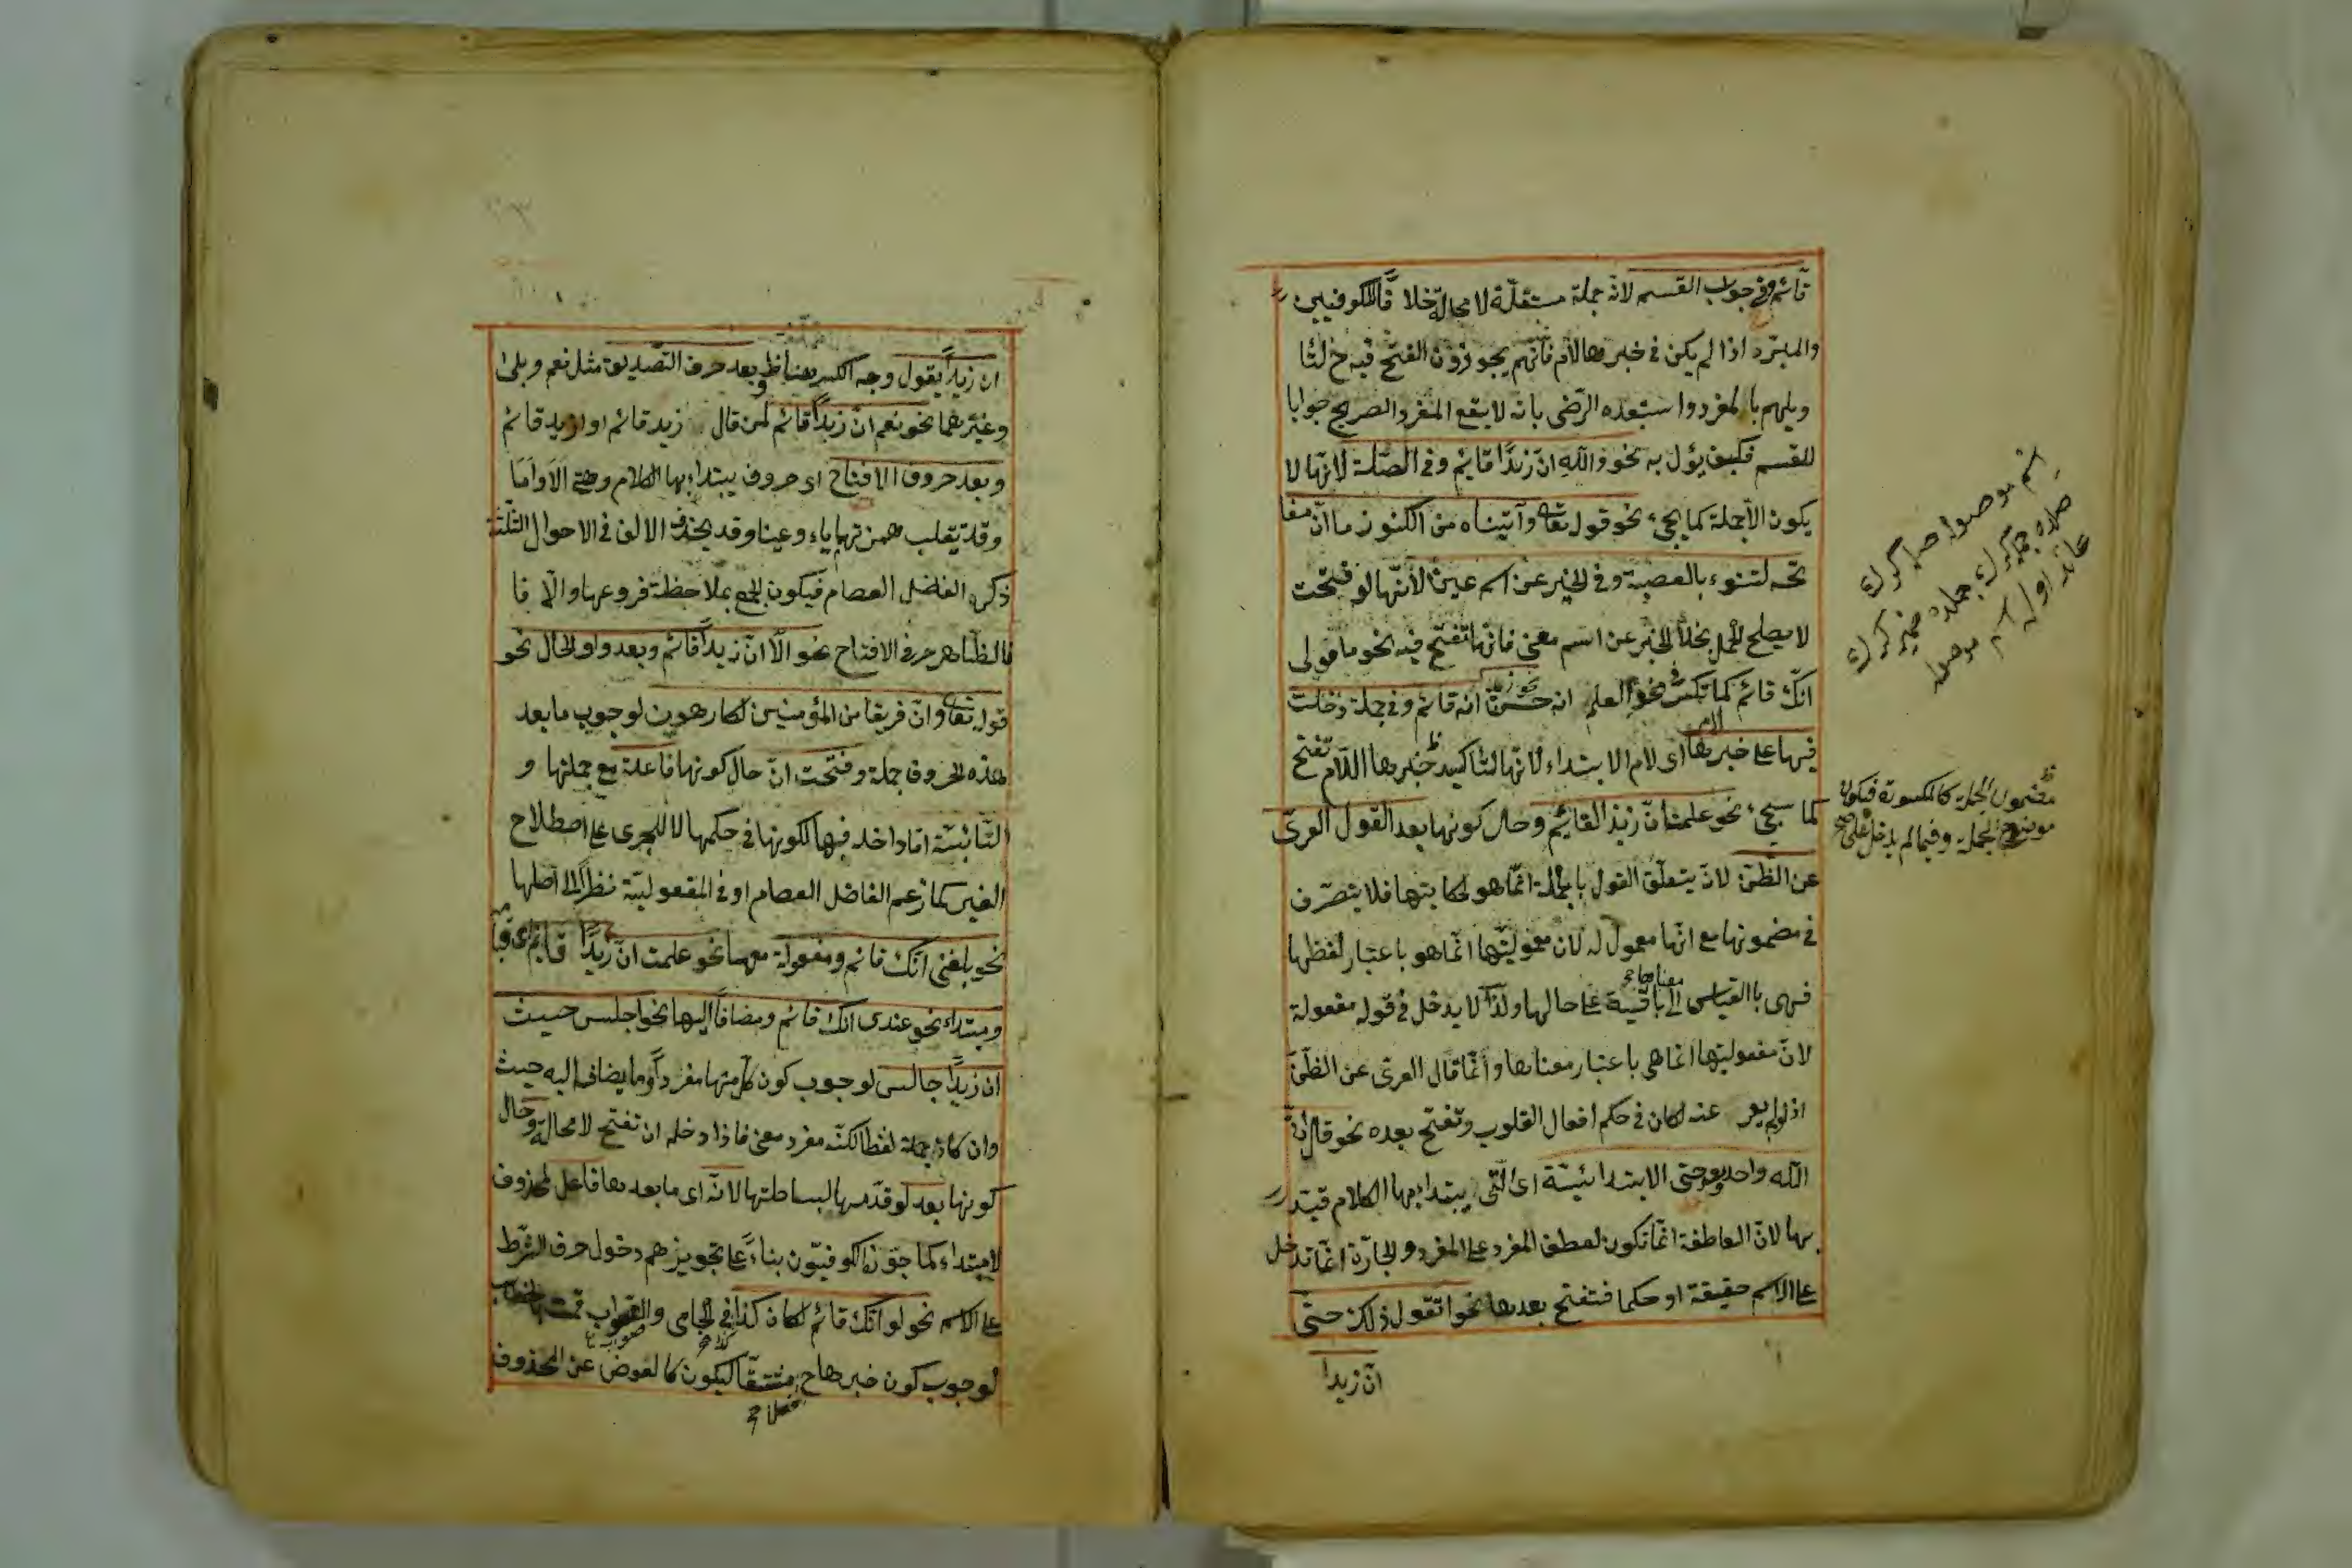 قائم وفي جواب القسم لانه جملة مستقلة لا محالة خلافا للكوفيين
والمبرد اذا لم يكن في خبرها لام فانهم يجوزون الفتح فيه ح لتا
ويلهم بالمفرد واستبعده الرضى بانه لا يقع المفرد الصريح جوابا
للقسم فكيف يؤل به نحو والله انّ زيدًا قائم وفي الصّلة لانها لا
يكون الّا جملة كما يجئ نحو قوله تعا وآتيناه من الكنوز ما انّ مفا
تحه لتنوء بالعصبة وفي الخبر عن اسم عين لانّها لو فتحت
لا يصلح الحمل بخلا الخبر عن اسم معنى فانها تفتح فيه نحو مأمولى
انّك قائم كما تكسر في نحو العلم انه حسن انه قائم وفي جملة دخلت
فيها على خبرها اى لام الابتداء لانها لتأكيد خبرها اللام تفتح
كما سيجئ نحو علمت انّ زيدًا لقائم وحال كونها بعد القول العرى
عن الظّن لانّ يتعلق القول بالجملة انّما هو لحكايتها فلا يتصرّف
في مضمونها مع انّها معمول له لان معموليتها انّما هو باعتبار لفظها
فهى بالقياس الى معناها باقية على حالها ولذا لا يدخل في قوله مفعولة
لانّ مفعوليتها انما هى باعتبار معناها وانّما قال العرى عن الظّنّ
اذ لو لم يعر عنه لكان في حكم افعال القلوب وتفتح بعده نحو قال انّ
الله واحد وبعد حتى الابتدائيّة اى الّتى يبتداء بها الكلام قيّد
بها لانّ العاطفة انّما تكون لعطف المفرد على المفرد والجارّة انّما تدخل
على الاسم حقيقة او حكما فتفتح بعدها نحو اتقول ذلك حتّى
انّ زيدا
مضمون الجملة كالمكسورة فيكون
موضع الجملة وفيما لم يدخل على
ان زيدًا يقول وجه الكسر هنا ظ وبعد حرف التّصديق مثل نعم وبلى
وغيرهما نحو نعم انّ زيدًا قائم لمن قال زيد قائم او ازيد قائم
وبعد حروف الافتتاح اى حروف يبتداء بها الكلام وهى الا واما
وقد تقلب همزتهما ياء وعينا وقد يحذف الالف في الاحوال الثّلثة
ذكره الفاضل العصام فيكون الجمع بملاحظة فروعها والّا فا
فالظّاهر حرفى الافتتاح نحو الّا انّ زيدًا قائم وبعد واو الحال نحو
قوله تعا وانّ فريقا من المؤمنين لكارهون لوجوب ما بعد
هذه الحروف جملة وفتحت انّ حال كونها فاعلة مع جملتها و
النّائبة اما داخله فيها لكونها في حكمها لا للجرى على اصطلاح
الغير كما زعم الفاضل العصام او في المفعوليّة نظرًا الى اصلها
نحو بلغنى انّك قائم ومفعولة معها نحو علمت انّ زيدًا قائم اى قيا
ومبتداء نحو عندى انّك قائم ومضافًا اليها نحو اجلس حيث
ان زيدًا جالس لوجوب كون كل منها مفردًا وما يضاف اليه حيث
وان كان جملة لفظا لكنّه مفرد معنى فاذا دخله ان تفتح لا محالة وحال
كونها بعد لو قدّمها لبساطتها لانّه اى ما بعدها فاعل لمحذوف
لا مبتداء كما جوّزه الكوفيّون بناءً على تجويزهم دخول حرف الشّرط
على الاسم نحو لو انّك قائم لكان كذا في الجامى والصّواب قمت
لوجوب كون خبرها ح مشتقًا ليكون كالعوض عن المحذوف